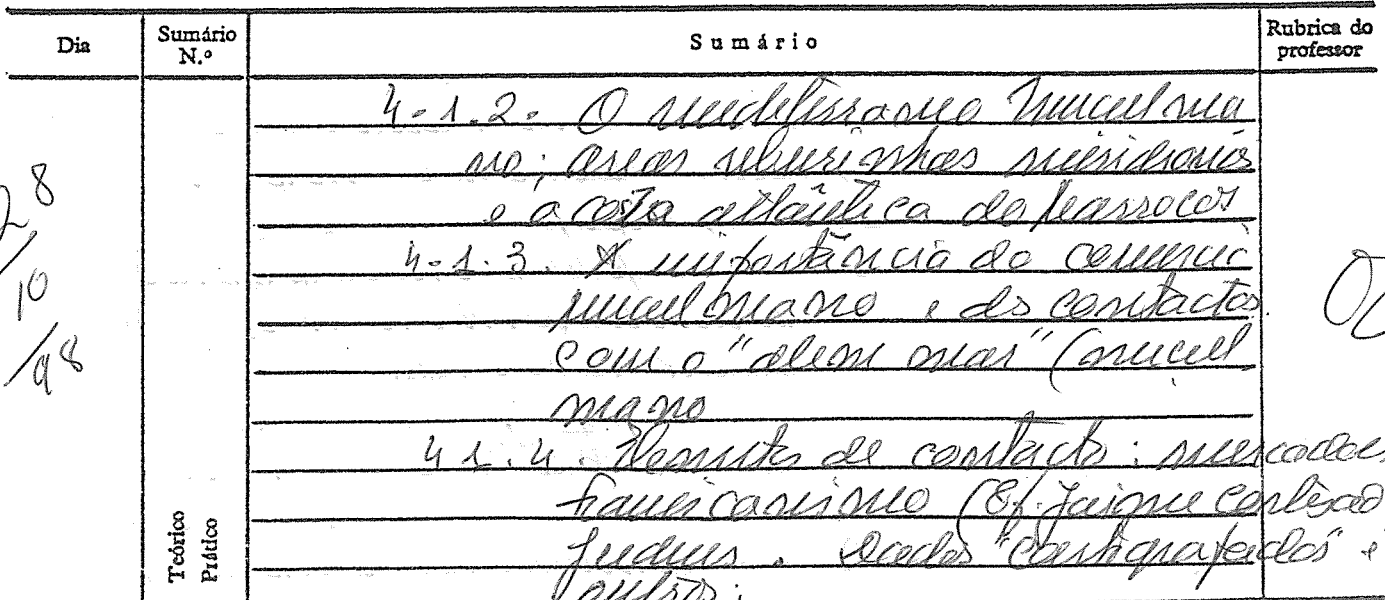 Dia
Sumário N.º
Sumário
Rubrica do professor
28/10/98
4-1.2- O mediterraneo muculma
no; areas ribeirinhas meridionais
e a costa atlântica de Marrocos
4-1.3. A importância do comercio
muculmano e ds contactos
com o "alem mar" (mucul
mano
4 1.4. de contacto: mercadores
franciscanismo (Cf. Jaime Cortesão
judeus. e
outros;
Teórico
Prático